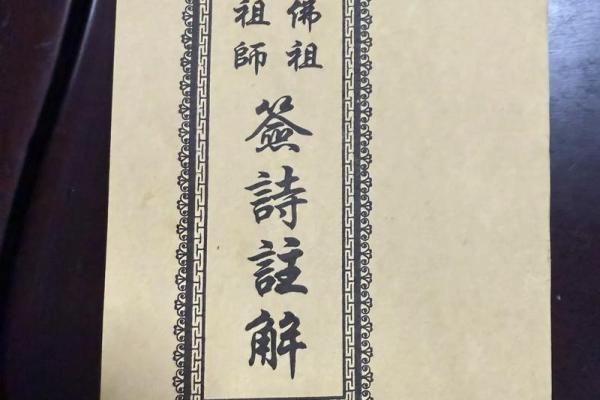 佛祖
祖師
簽詩註解